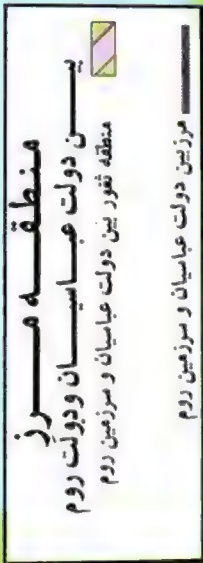 منطقه مرز
بین دولت عباسیان و دولت روم
منطقه ثغور بین دولت عباسیان و سرزمین روم
مرز بین دولت عباسیان و سرزمین روم